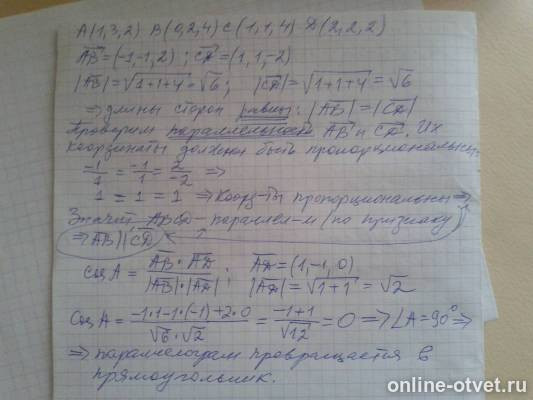 A(1,3,2) B(0,2,4) C(1,1,4) D(2,2,2)
AB=(-1,-1,2); CD=(1,1,-2)
|AB|=√1+1+4=√6; |CD|=√1+1+4=√6
⇒ длины сторон равны: |AB|=|CD|
Проверим параллельность AB и CD. Их
координаты должны быть пропорциональны:
-1/1 = -1/1 = 2/-2 ⇒
1 = 1 = 1 ⇒ коорд-ты пропорциональны ⇒
Значит, ABCD - параллел-м (по признаку)
⇒ AB||CD
cos A = AB·AD / |AB|·|AD| ; AD=(1,-1,0)
|AD|=√1+1=√2
cos A = -1·1-1·(-1)+2·0 / √6·√2 = -1+1 / √12 = 0 ⇒ ∠A=90° ⇒
⇒ параллелограм превращается в
прямоугольник.
online-otvet.ru